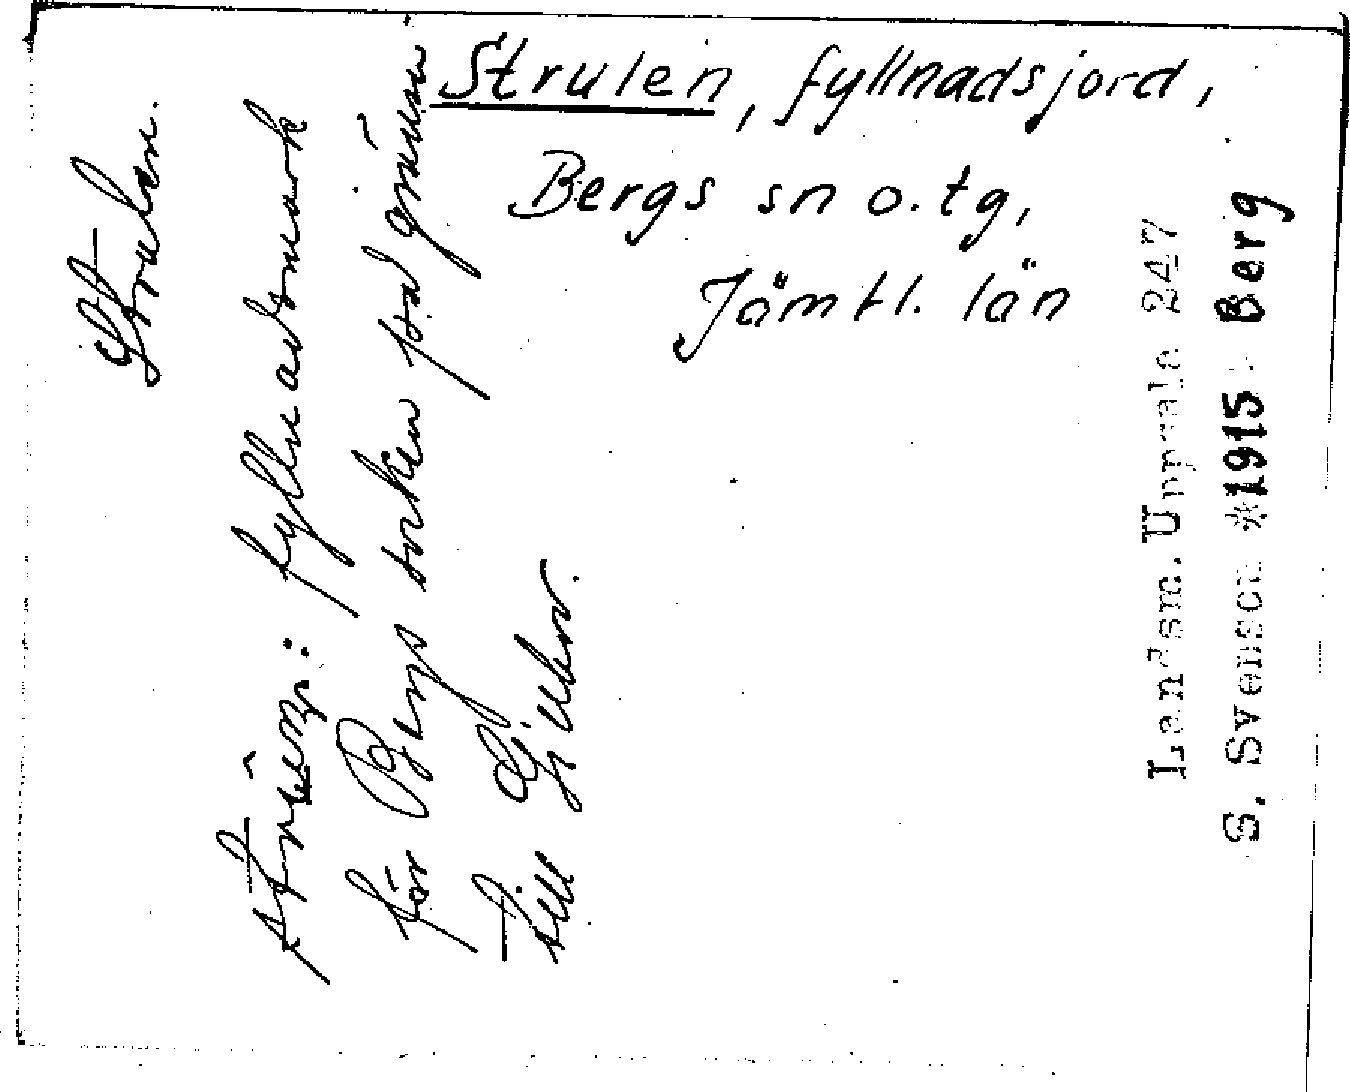 Strulen, fyllnadsjord,
Bergs sn o. tg,
Jämtl. län
Strulen.
fyllnadsmark
för Bergs socken på gränsen
till
Landsm. Uppsala 247
S. Svenson *1915 Berg